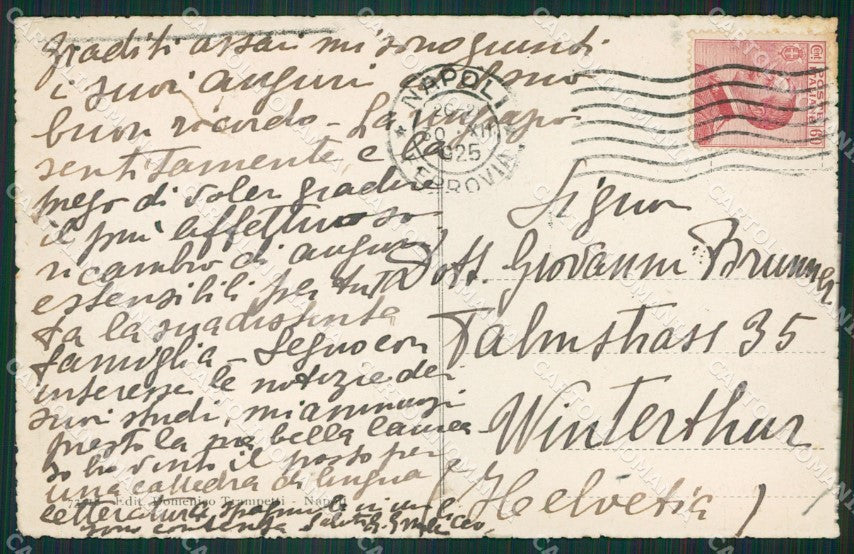 graditi assai mi sono giunti
i suoi auguri e il suo
buon ricordo - La ringrazio
sentitamente, e La
prego di voler gradire
il più affettuoso
ricambio di auguri
estensibili per tutta
la sua distinta
famiglia - Seguo con
interesse le notizie dei
suoi studi, mi annunzi
presto la sua bella laurea
Io ho vinto il posto per
una cattedra di lingua
e letteratura spagnuola
con
Edit. Domenico Trampetti - Napoli
NAPOLI
20 XII
1925
FERROVIA
POSTE ITALIANE
Cent 60
Signor
Dott. Giovanni Brunner
Talmstrass 35
Winterthur
(Helvetia)
CARTOLINOMANIA